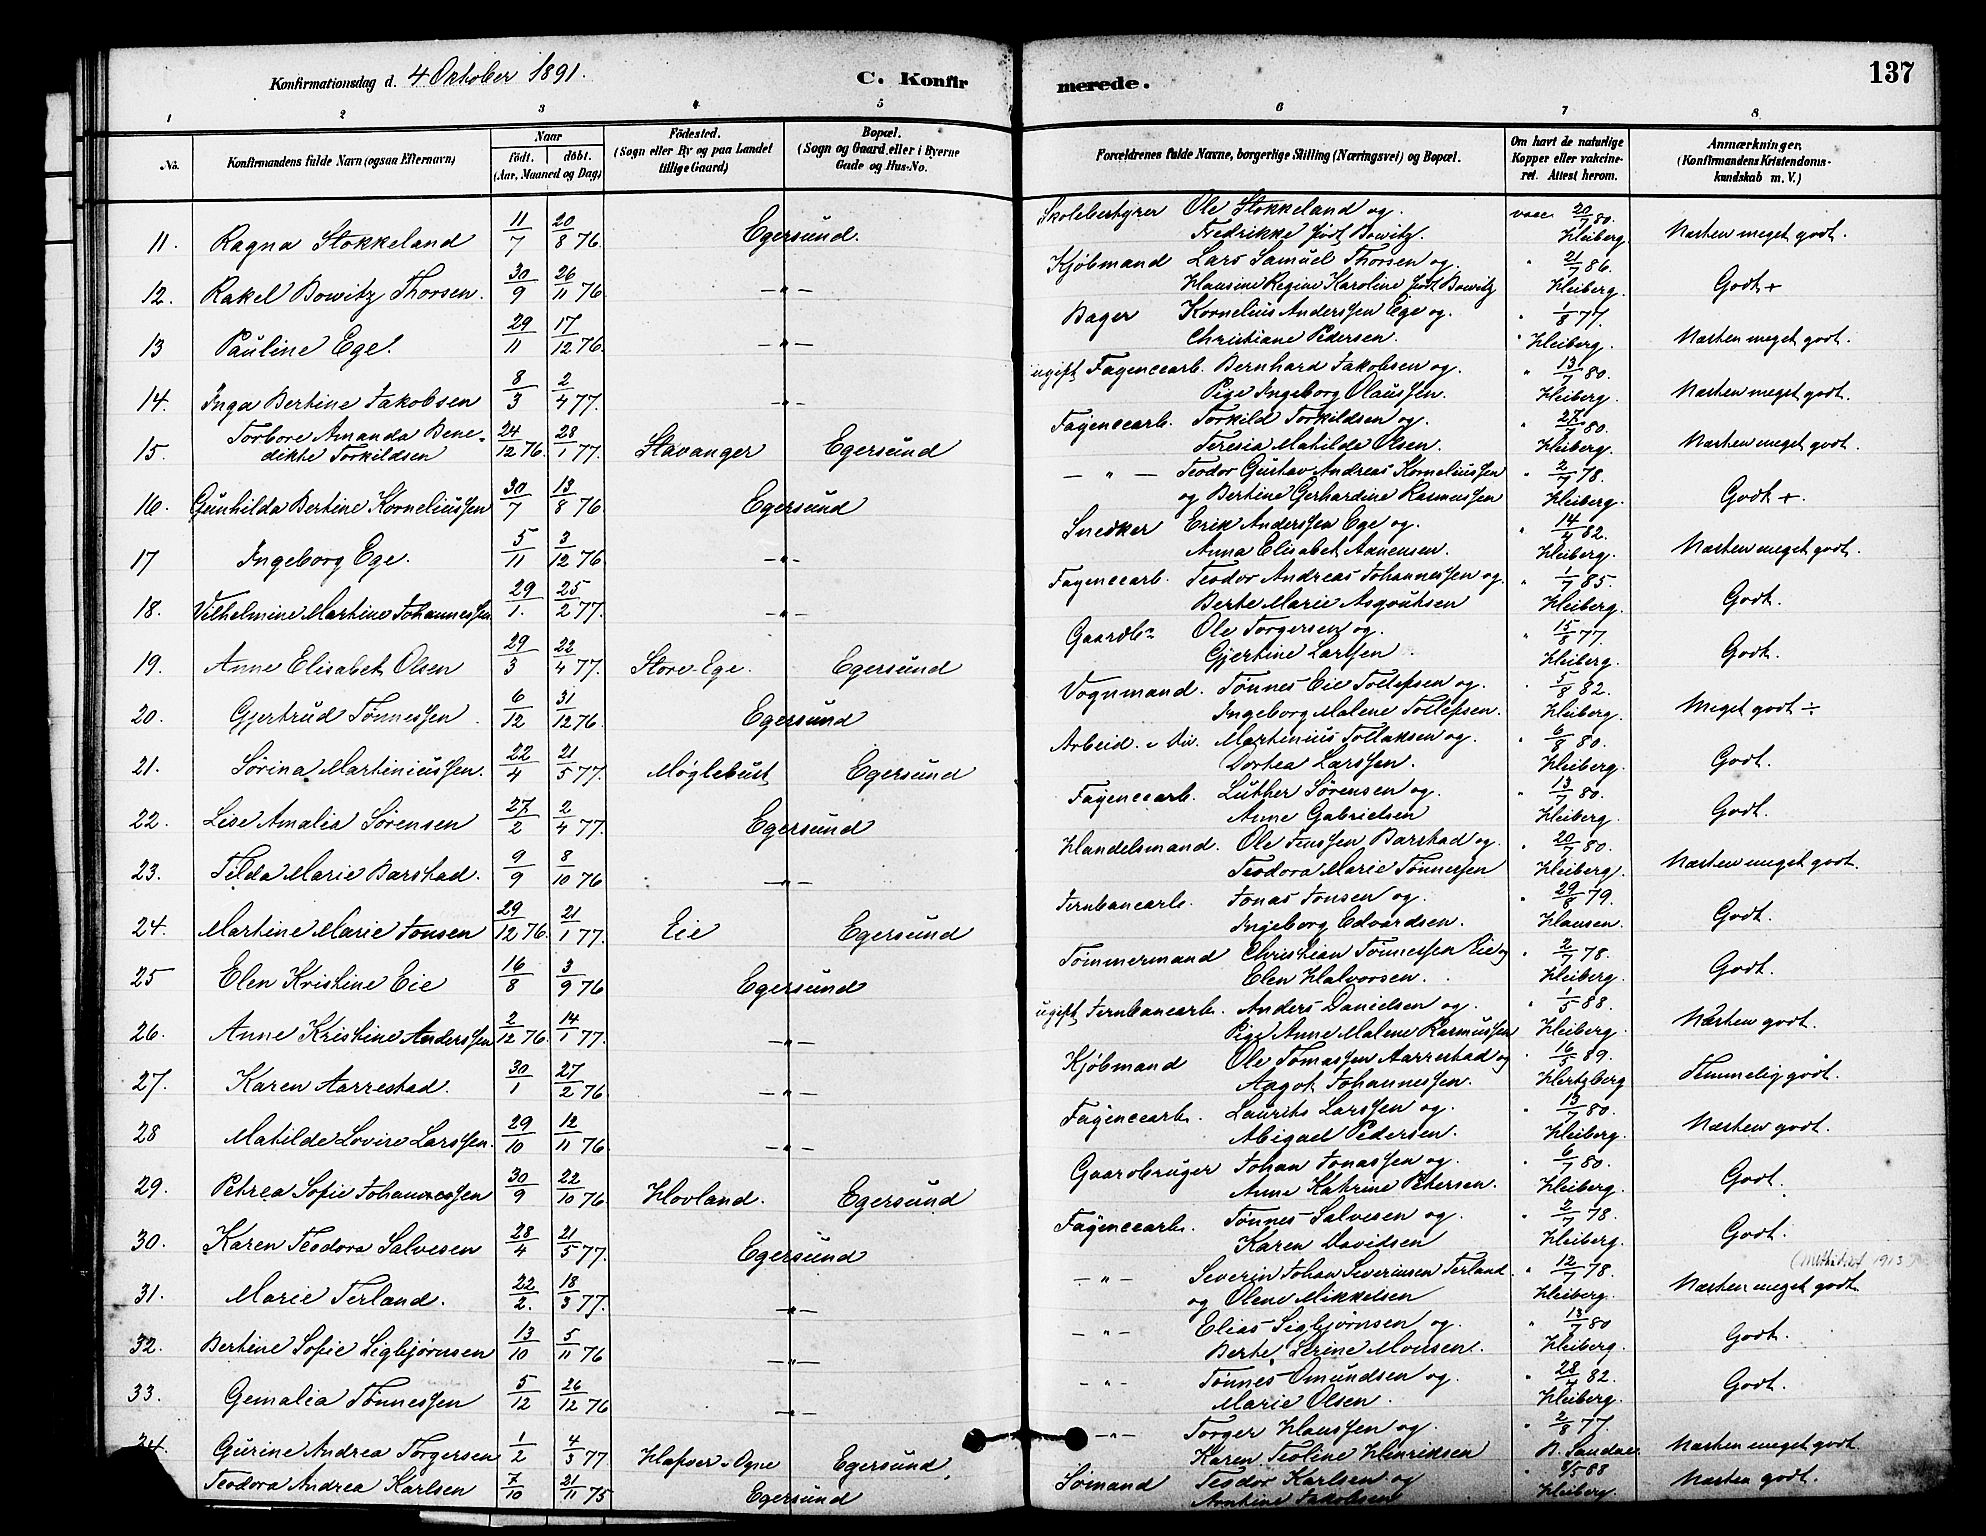 Konfirmationsdag d. 4 Oktober 1891.
C. Konfir
merede.
137
1 2 3 4 5 6 7 8
No.
Konfirmandens fulde Navn (ogsaa Efternavn)
Naar
födt. döbt.
(Aar, Maaned og Dag)
Födested.
(Sogn eller By og paa Landet
tillige Gaard)
Bopæl.
(Sogn og Gaard, eller i Byerne
Gade og Hus-No.
Forældrenes fulde Navne, borgerlige Stilling (Næringsvei) og Bopæl.
Om havt de naturlige
Kopper eller vakcine-
ret. Attest herom.
Anmærkninger.
(Konfirmandens Kristendoms-
kundskab m. V.)
11. Ragna Stokkeland 11/7 20/8 76 Egersund. Skolebestyrer Ole Stokkeland og vacc. 20/7 80.
Fredrikke født Bowitz. Kleiberg. Næsten meget godt.
12. Rakel Bowitz Thorsen. 30/9 26/11 76 —"— Kjøbmand Lars Samuel Thorsen og " 21/7 86.
Hansine Regine Karoline født Bowitz Kleiberg. Godt +
13 Pauline Ege. 29/11 17/12 76 —"— Bager Kornelius Anderssen Ege og " 1/8 77.
Christiane Pedersen. Kleiberg. Næsten meget godt.
14. Inga Bertine Jakobsen 8/3 2/4 77. —"— ugift Fayencearb. Bernhard Jakobsen og " 13/7 80.
Pige Ingeborg Olaussen. Kleiberg. Næsten meget godt.
15. Torbore Amanda Bene-
dikte Torkildsen 24/12 76. 28/1 77. Stavanger Egersund Fayencearb. Torkild Torkildsen og " 27/7 80.
Teresia Matilde Olsen. Kleiberg. Næsten meget godt.
16. Gunhilda Bertine Korneliussen 30/7 13/8 76 Egersund — " — Teodor Gustav Andreas Korneliussen " 2/7 78.
og Bertine Gerhardine Rasmussen Kleiberg. Godt +.
17 Ingeborg Ege. 5/11 3/12 76 —"— Snedker Erik Anderssen Ege og " 14/4 82.
Anna Elisabet Aanensen. Kleiberg. Næsten meget godt.
18. Vilhelmine Martine Johannessen 29/1. 25/2 77. —"— Fayencearb. Teodor Andreas Johannessen og " 1/7 85.
Berte Marie Asgoutsen Kleiberg. Godt.
19. Anne Elisabet Olsen 29/3 22/4 77. Store Ege. Egersund Gaardbr. Ole Torgersen og " 15/8 77.
Gjertine Larssen. Kleiberg. Godt.
20. Gjertrud Tønnessen 6/12 31/12 76 Egersund Vognmand. Tønnes Eie Tollefsen og " 5/8 82.
Ingeborg Malene Tollefsen. Kleiberg. Meget godt ÷.
21. Sørina Martiniussen. 22/4 21/5 77. Møglebust Egersund Arbeid. v Div. Martinius Tollaksen og " 6/8 80.
Dortea Larssen. Kleiberg. Godt.
22. Lise Amalia Sørensen 27/2 2/4 77. Egersund Fayencearb. Luther Sørensen og " 13/7 80.
Anne Gabrielsen Kleiberg. Godt.
23. Tilda Marie Barstad. 9/9 8/10 76 —"— Handelsmand. Ole Jenssen Barstad og " 20/7 80.
Teodora Marie Tønnessen Kleiberg. Næsten meget godt.
24. Martine Marie Jonsen 29/12 76. 21/1 77. Eie Egersund Jernbanearb. Jonas Jonsen og " 29/8 79.
Ingeborg Edvardsen. Hansen. Godt.
25 Elen Kristine Eie 16/8 3/9 76 Egersund Tømmermand Christian Tønnessen Eie og " 2/7 78.
Elen Halvorsen. Kleiberg. Godt.
26. Anne Kristine Anderssen 2/12 76. 14/1 77. —"— ugift Jernbanearb. Anders Danielsen og " 1/5 88.
Pige Anne Malene Rasmussen Kleiberg. Næsten godt.
27. Karen Aarrestad. 30/1 27/2 76. —"— Kjøbmand Ole Tomassen Aarrestad og " 16/5 89.
Aagot Johannessen. Hertzberg Temmelig godt.
28 Matilde Lovise Larssen. 29/10 12/11 76 —"— Fayencearb. Laurits Larssen og " 13/7 80.
Abigael Pedersen. Kleiberg. Næsten godt.
29. Petrea Sofie Johannessen 30/9 22/10 76 Hovland. Egersund Gaardbruger Johan Jonassen og " 6/7 80.
Anne Katrine Petersen. Kleiberg. Godt.
30. Karen Teodora Salvesen 28/4 21/5 77. Egersund Fayencearb. Tønnes Salvesen og " 2/7 78.
Karen Davidsen Kleiberg. Godt.
31. Marie Terland. 22/2. 18/3 77. —"— — " — Severin Johan Severinsen Terland. " 12/7 78.
og Olene Mikkelsen Kleiberg. Næsten meget godt
32. Bertine Sofie Sigbjørnsen 13/10 5/11 76 —"— — " — Elias Sigbjørnsen og " 13/7 80
Berte Serine Monsen. Kleiberg. Godt.
33. Gemalia Tønnessen 5/12 26/12 76 —"— — " — Tønnes Omundsen og " 28/4 82.
Marie Olsen. Kleiberg. Godt.
34. Gurine Andrea Torgersen 1/2 4/3 77 Hafsøe i Ogne Egersund. — " — Torger Hanssen og " 2/8 77.
Karen Teoline Henriksen Næsten meget godt
Teodora Andrea Karlsen 7/10 21/11 75 Egersund Sømand Teodor Karlsen og " 8/5 88
Jakobsen Kleiberg. Næsten godt.